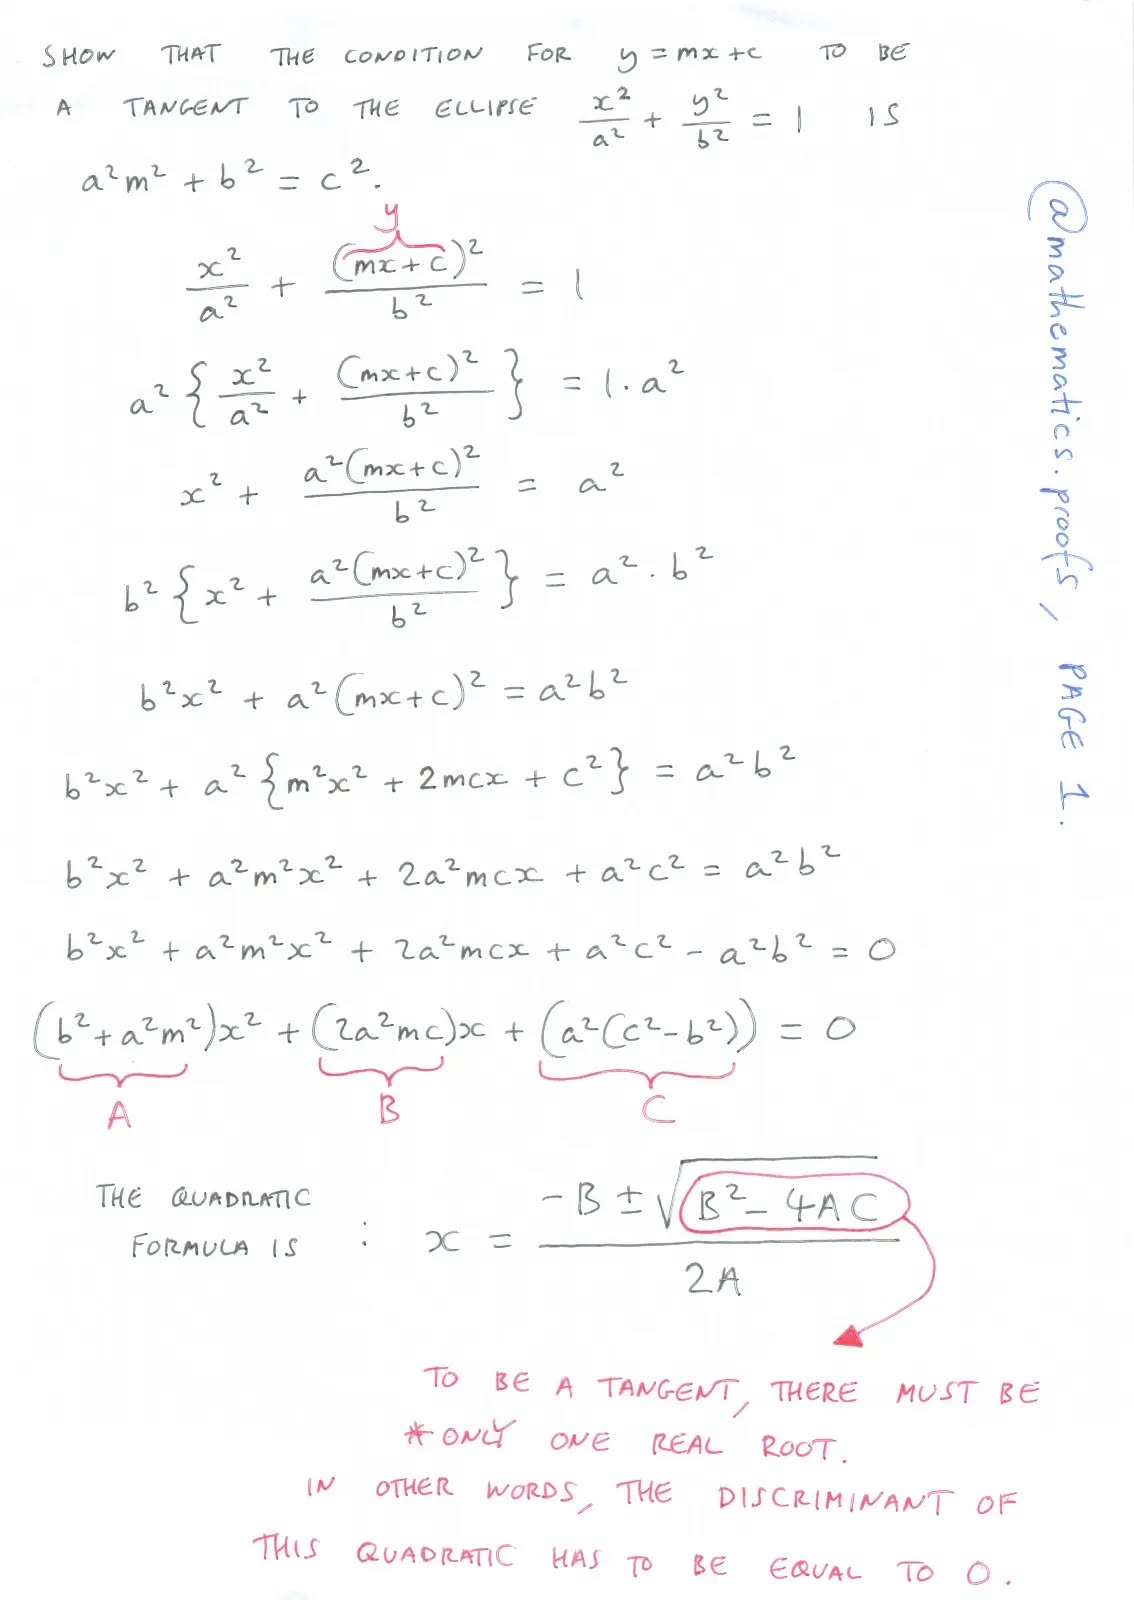 SHOW THAT THE CONDITION FOR y = mx + c TO BE
A TANGENT TO THE ELLIPSE x²/a² + y²/b² = 1 IS
a²m² + b² = c².
y
x²/a² + (mx + c)²/b² = 1
a² { x²/a² + (mx + c)²/b² } = 1 · a²
x² + a²(mx + c)²/b² = a²
b² { x² + a²(mx + c)²/b² } = a² · b²
b²x² + a²(mx + c)² = a²b²
b²x² + a² { m²x² + 2mcx + c² } = a²b²
b²x² + a²m²x² + 2a²mcx + a²c² = a²b²
b²x² + a²m²x² + 2a²mcx + a²c² - a²b² = 0
(b² + a²m²)x² + (2a²mc)x + (a²(c² - b²)) = 0
A B C
THE QUADRATIC
FORMULA IS : x = (-B ± √(B² - 4AC))/2A
TO BE A TANGENT, THERE MUST BE
* ONLY ONE REAL ROOT.
IN OTHER WORDS, THE DISCRIMINANT OF
THIS QUADRATIC HAS TO BE EQUAL TO 0.
@mathematics.proofs, PAGE 1.